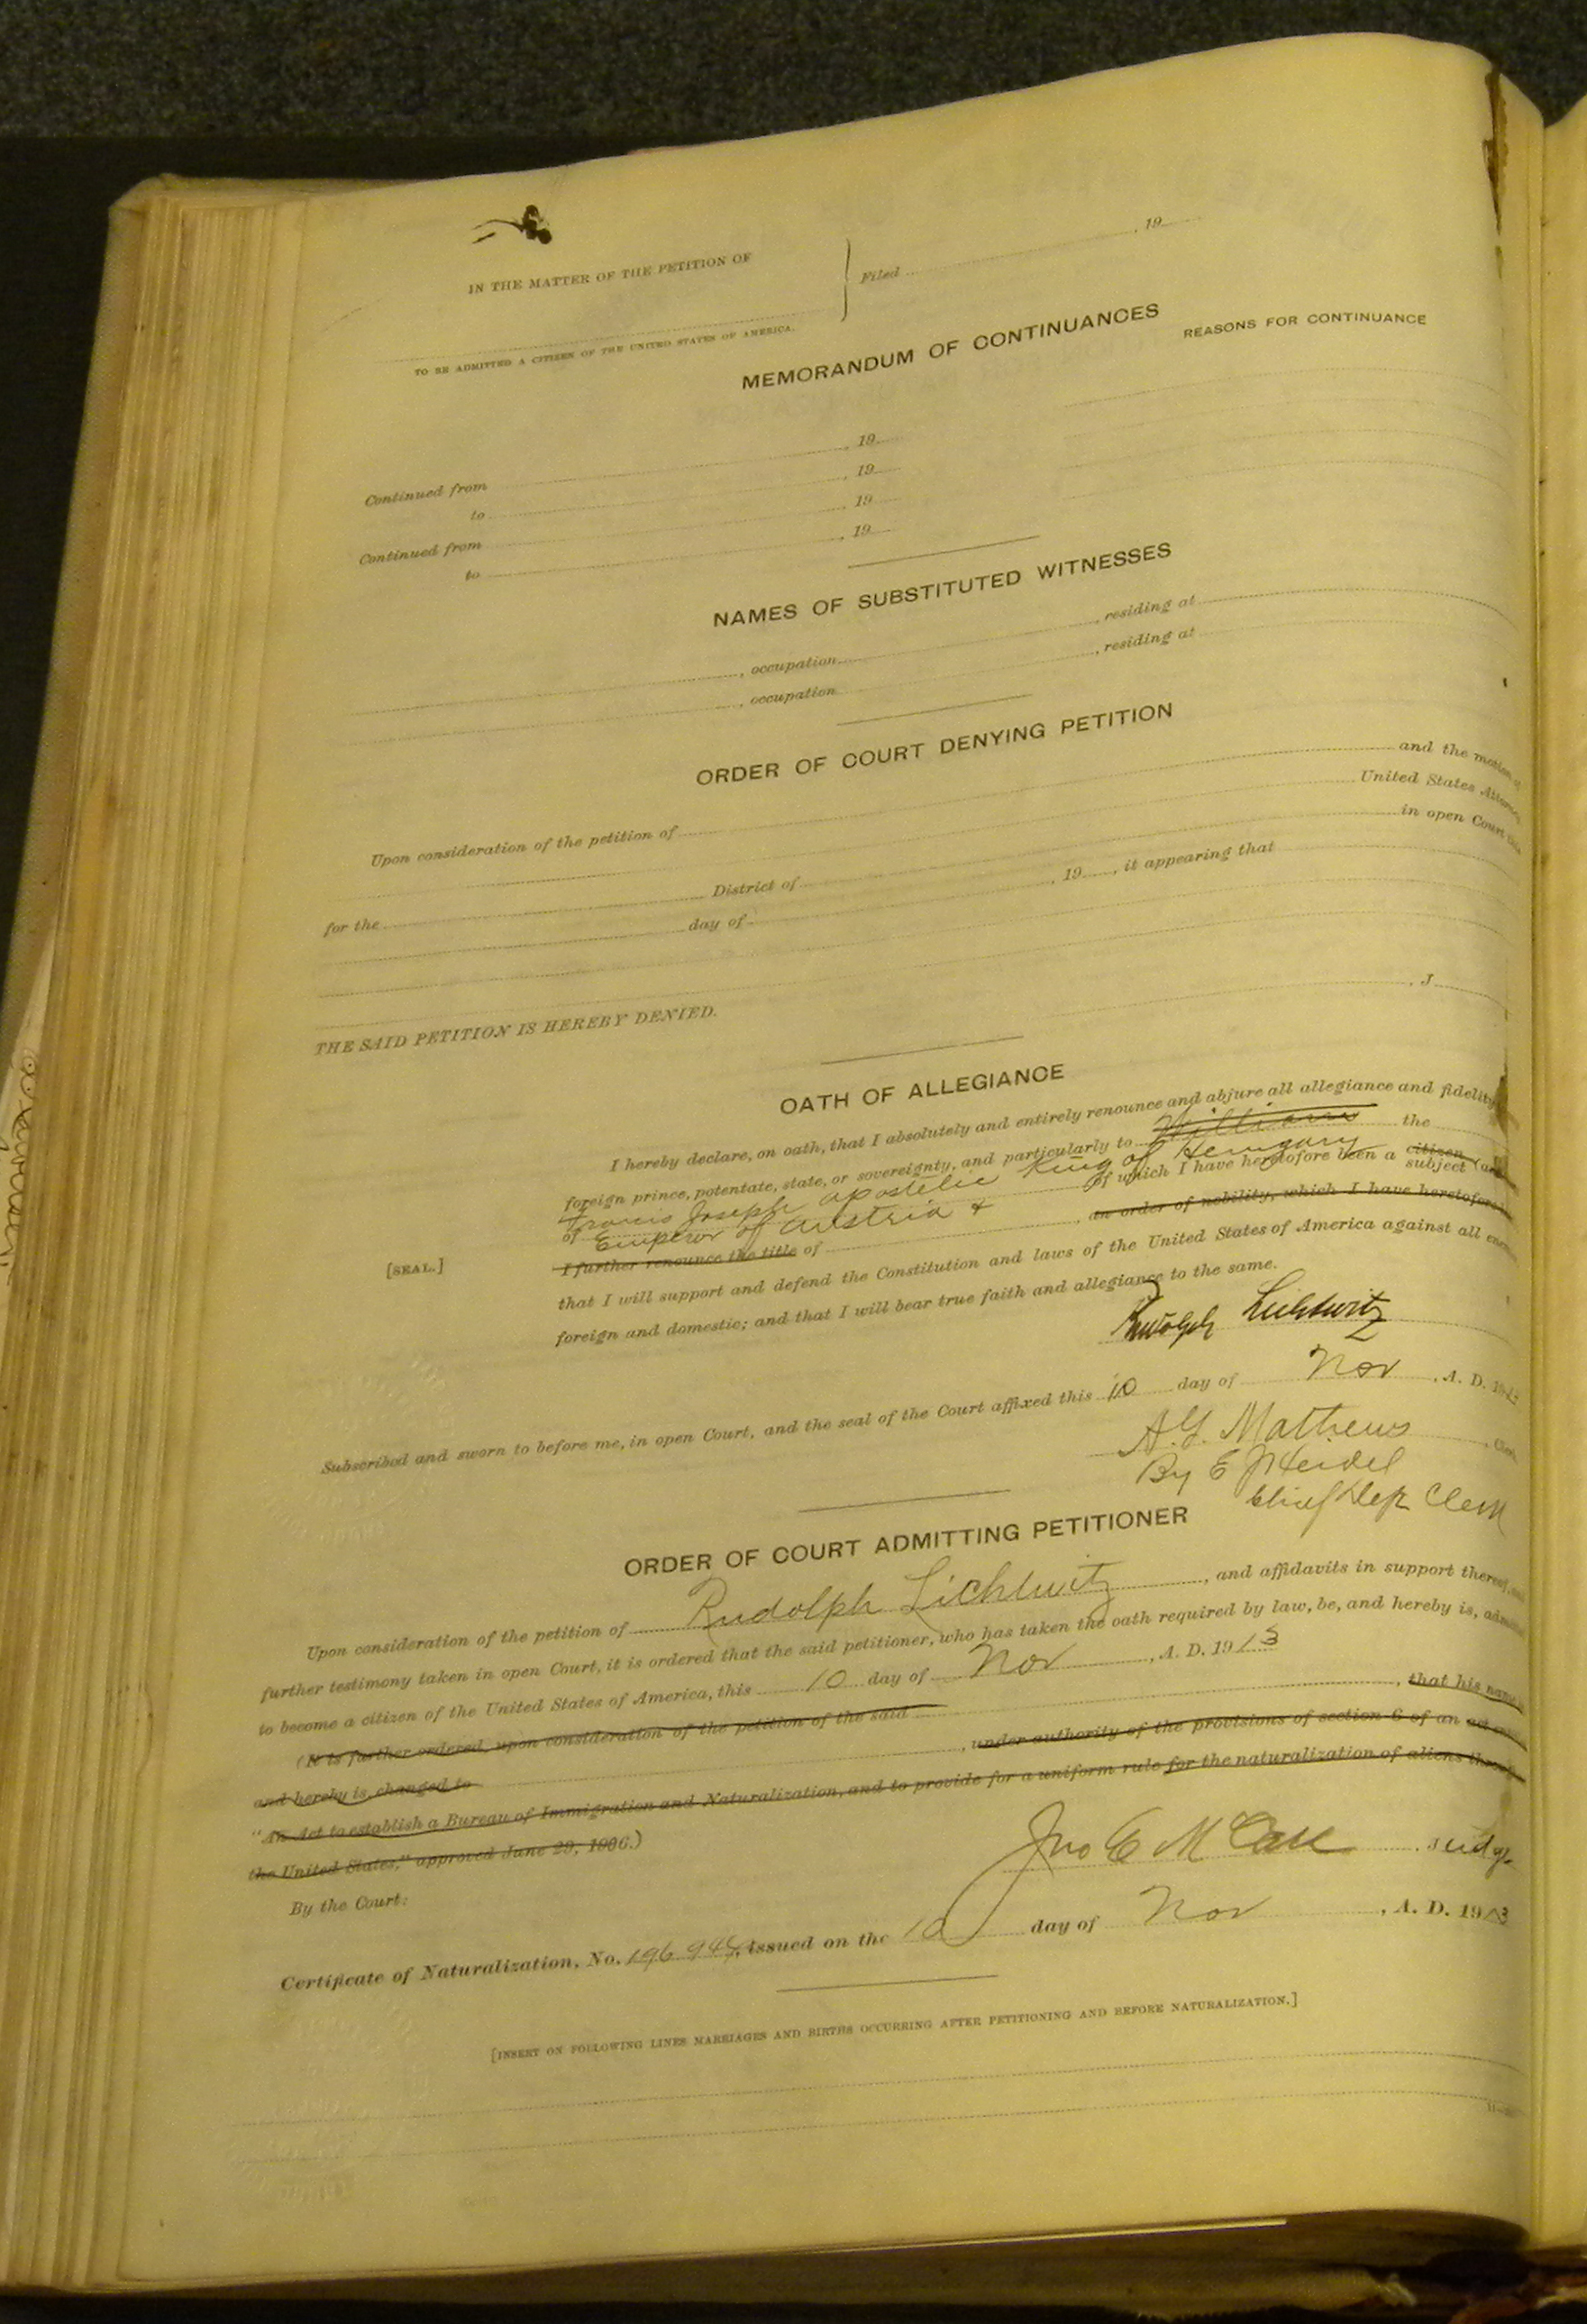 IN THE MATTER OF THE PETITION OF
Filed , 19
TO BE ADMITTED A CITIZEN OF THE UNITED STATES OF AMERICA.
MEMORANDUM OF CONTINUANCES
REASONS FOR CONTINUANCE
Continued from , 19
to , 19
Continued from , 19
to , 19
NAMES OF SUBSTITUTED WITNESSES
, occupation , residing at
, occupation , residing at
ORDER OF COURT DENYING PETITION
Upon consideration of the petition of and the motion of
United States Attorney
for the District of in open Court this
day of , 19 , it appearing that
THE SAID PETITION IS HEREBY DENIED.
, J
OATH OF ALLEGIANCE
I hereby declare, on oath, that I absolutely and entirely renounce and abjure all allegiance and fidelity
foreign prince, potentate, state, or sovereignty, and particularly to William the
Francis Joseph apostolic King of Hungary
of Emperor of Austria & of which I have heretofore been a citizen subject
I further renounce the title of , an order of nobility, which I have heretofore
[SEAL.]
that I will support and defend the Constitution and laws of the United States of America against all
foreign and domestic; and that I will bear true faith and allegiance to the same.
Rudolph Lichtwitz
Subscribed and sworn to before me, in open Court, and the seal of the Court affixed this 10 day of Nov , A. D. 1913
A. G. Mathews
By E J Heidel
Chief Dep Clerk
ORDER OF COURT ADMITTING PETITIONER
Upon consideration of the petition of Rudolph Lichtwitz , and affidavits in support thereof
further testimony taken in open Court, it is ordered that the said petitioner, who has taken the oath required by law, be, and hereby is,
to become a citizen of the United States of America, this 10 day of Nov , A. D. 1913
(It is further ordered, upon consideration of the petition of the said , that his name
and hereby is, changed to , under authority of the provisions of section 6 of an act
"An Act to establish a Bureau of Immigration and Naturalization, and to provide for a uniform rule for the naturalization of aliens
the United States," approved June 29, 1906.)
By the Court:
Jno E McCall Judge
Certificate of Naturalization, No. , issued on the 10 day of Nov , A. D. 1913
[INSERT ON FOLLOWING LINES MARRIAGES AND BIRTHS OCCURRING AFTER PETITIONING AND BEFORE NATURALIZATION.]